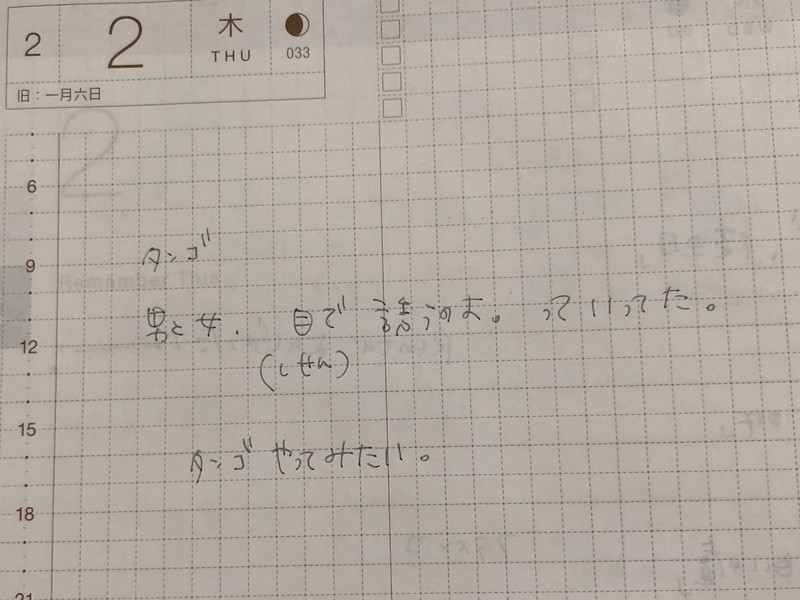 2 2 木 THU 033
旧：一月六日
6
タンゴ
9
Remember This
男と女. 目で話すのよ。っていってた。
12
(しせん)
15
タンゴやってみたい。
18
21